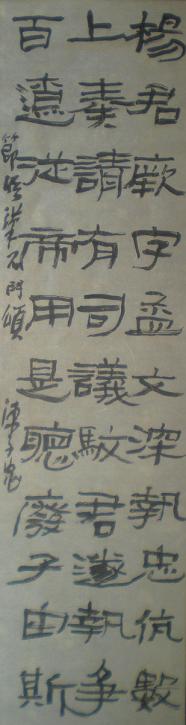 楊君厥字孟文深執忠伉數
上奏請有司議駮君遂執爭
百遼從帝用是聽廢子由斯
節臨漢石門頌 陳子